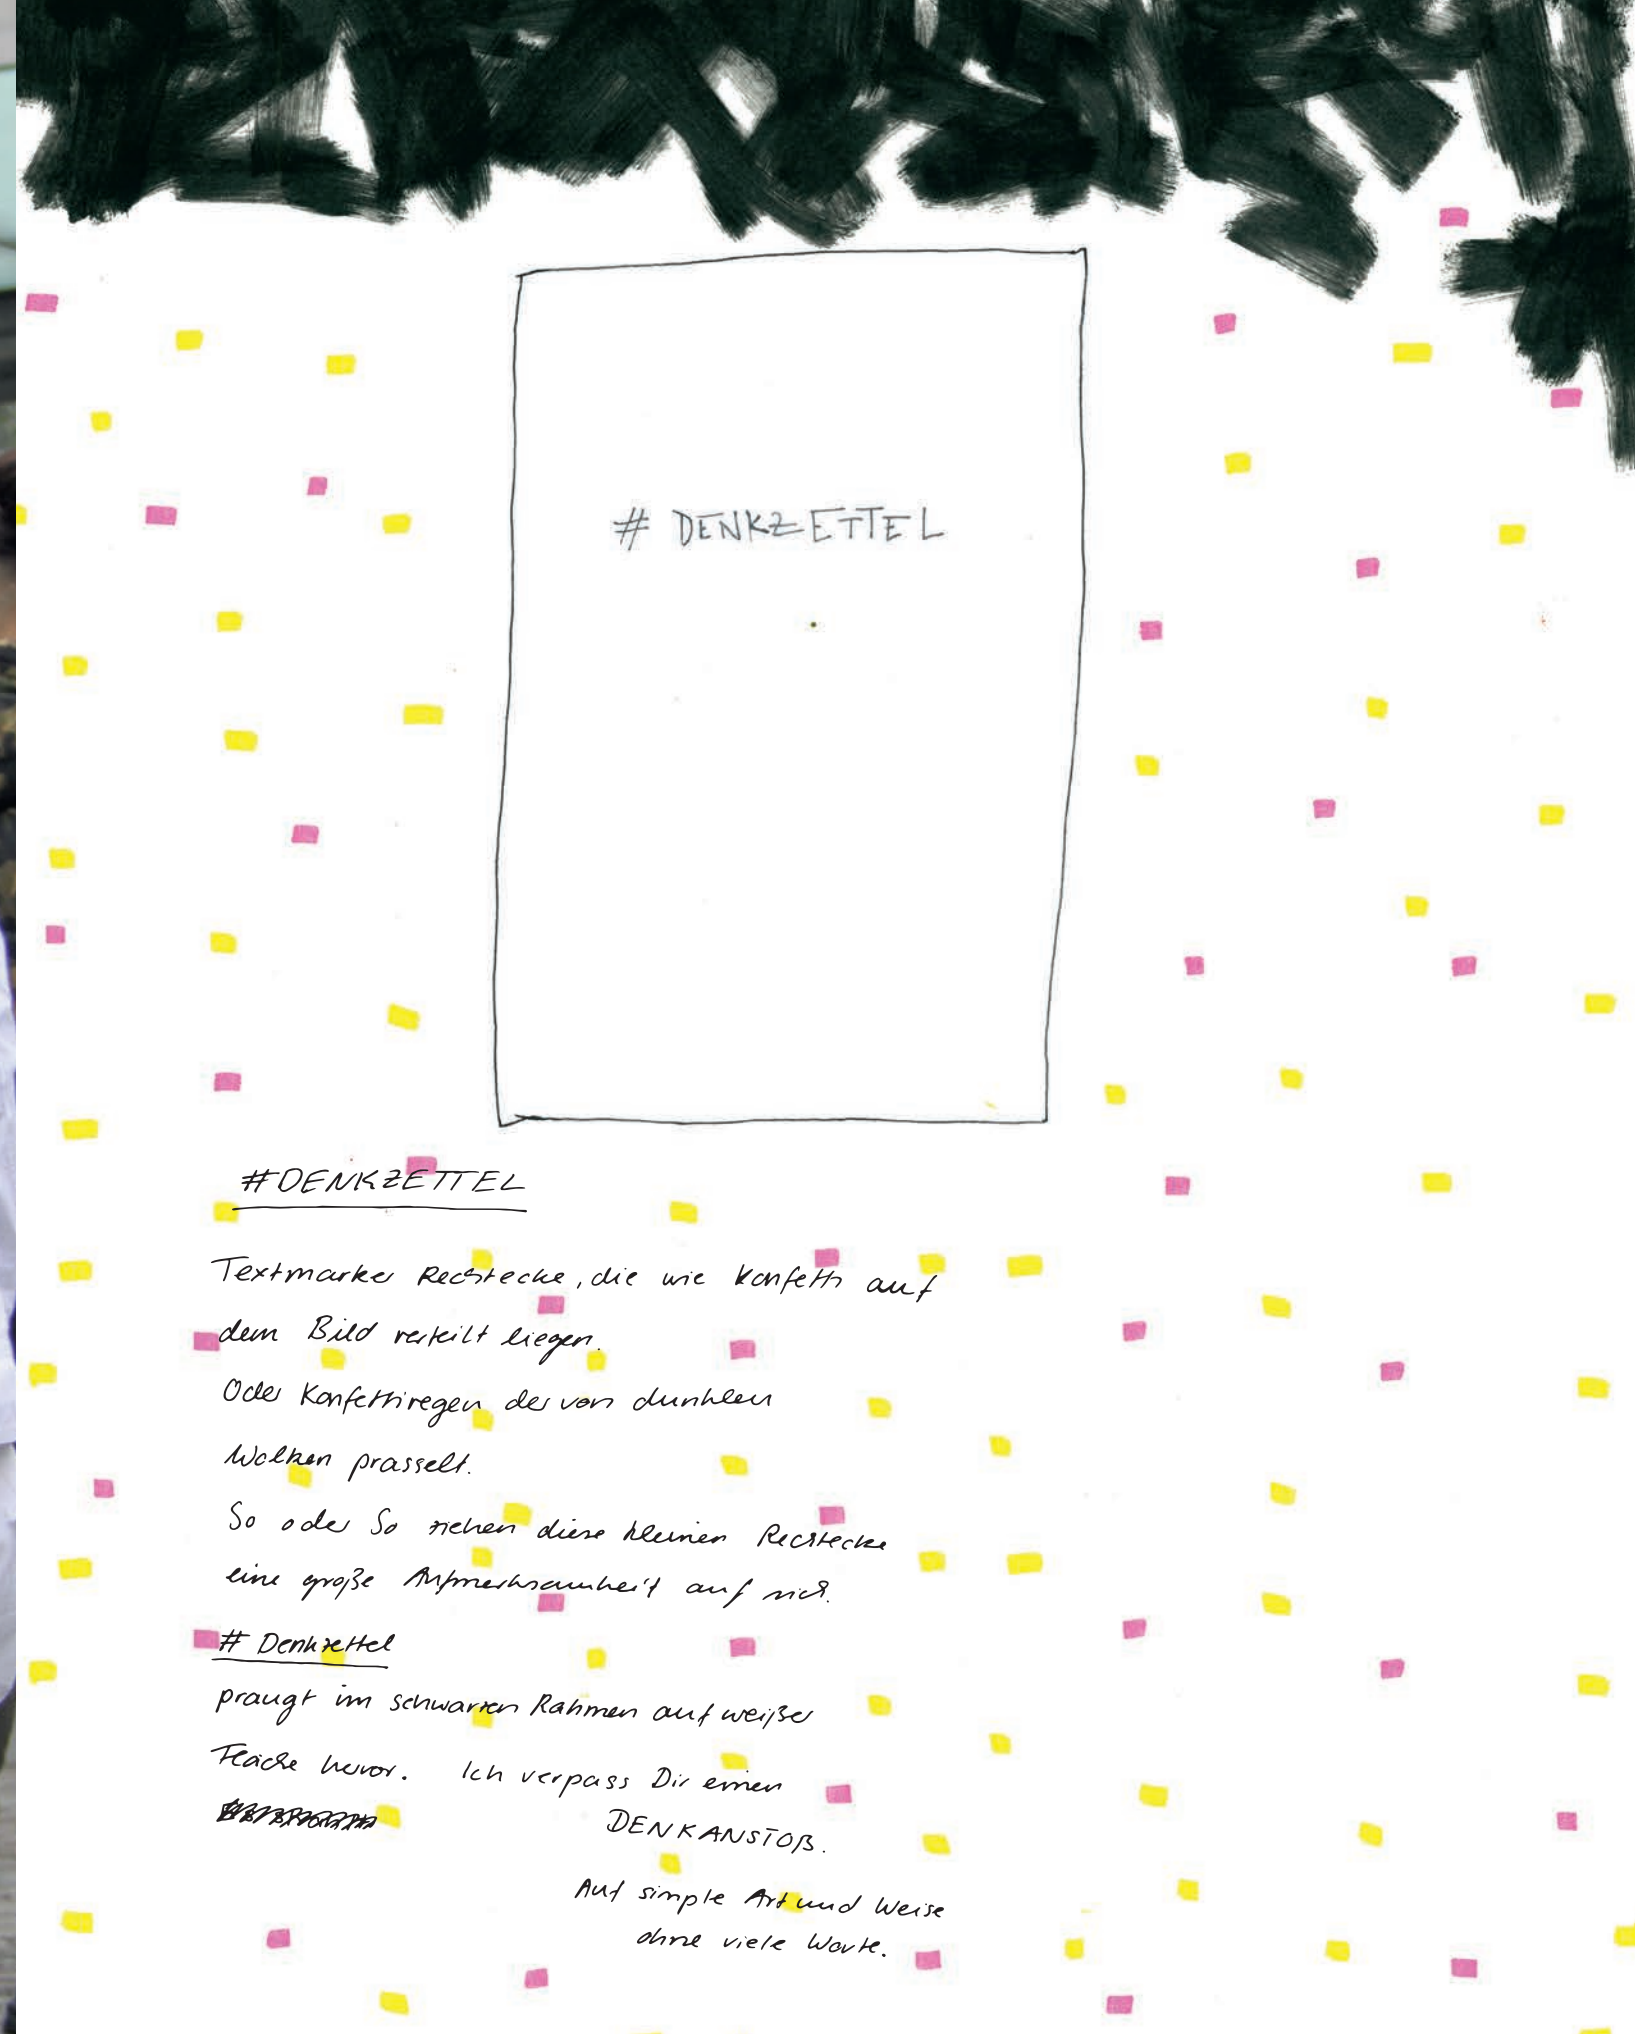 # DENKZETTEL
#DENKZETTEL
Textmarker Rechtecke, die wie Konfetti auf
dem Bild verteilt liegen.
Oder Konfettiregen der von dunklen
Wolken prasselt.
So oder So ziehen diese kleinen Rechtecke
eine große Aufmerksamkeit auf sich.
# Denkzettel
praugt im schwarzen Rahmen auf weißer
Fläche hervor. Ich verpass Dir einen
DENKANSTOß.
Auf simple Art und Weise
ohne viele Worte.